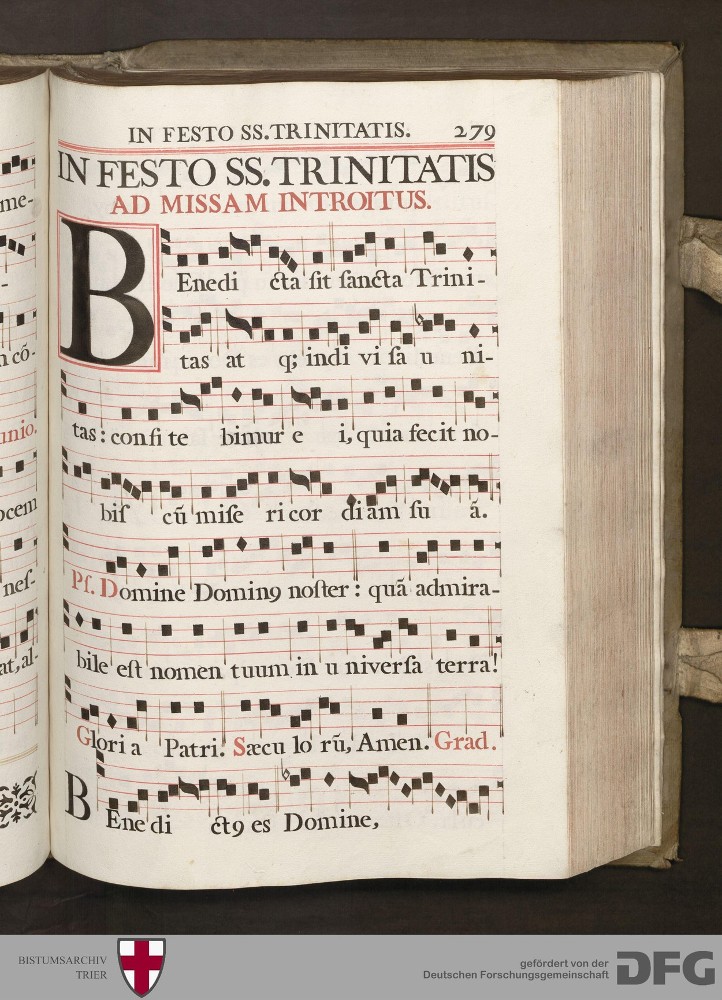 IN FESTO SS. TRINITATIS. 279
IN FESTO SS. TRINITATIS
AD MISSAM INTROITUS.
BEnedi cta ſit ſancta Trini-
tas at q; indi vi ſa u ni-
tas: confi te bimur e i, quia fecit no-
biſ cū miſe ricor diam ſu ā.
Pſ. Domine Dominꝯ noſter: quā admira-
bile eſt nomen tuum in u niverſa terra!
Glori a Patri. Sæcu lo rū, Amen. Grad.
BEne di ctꝯ es Domine,
me-
-
n cō-
unio.
ocem
neſ-
at, al-
BISTUMSARCHIV
TRIER
gefördert von der
Deutschen Forschungsgemeinschaft
DFG